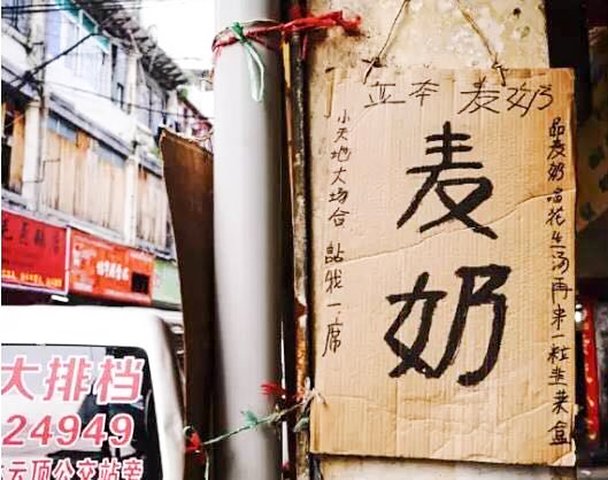 亚本 麦奶
麦奶
品麦奶品花生汤再来一粒韭菜盒
小天地大场合 我一席
大排档
24949
云顶公交站旁